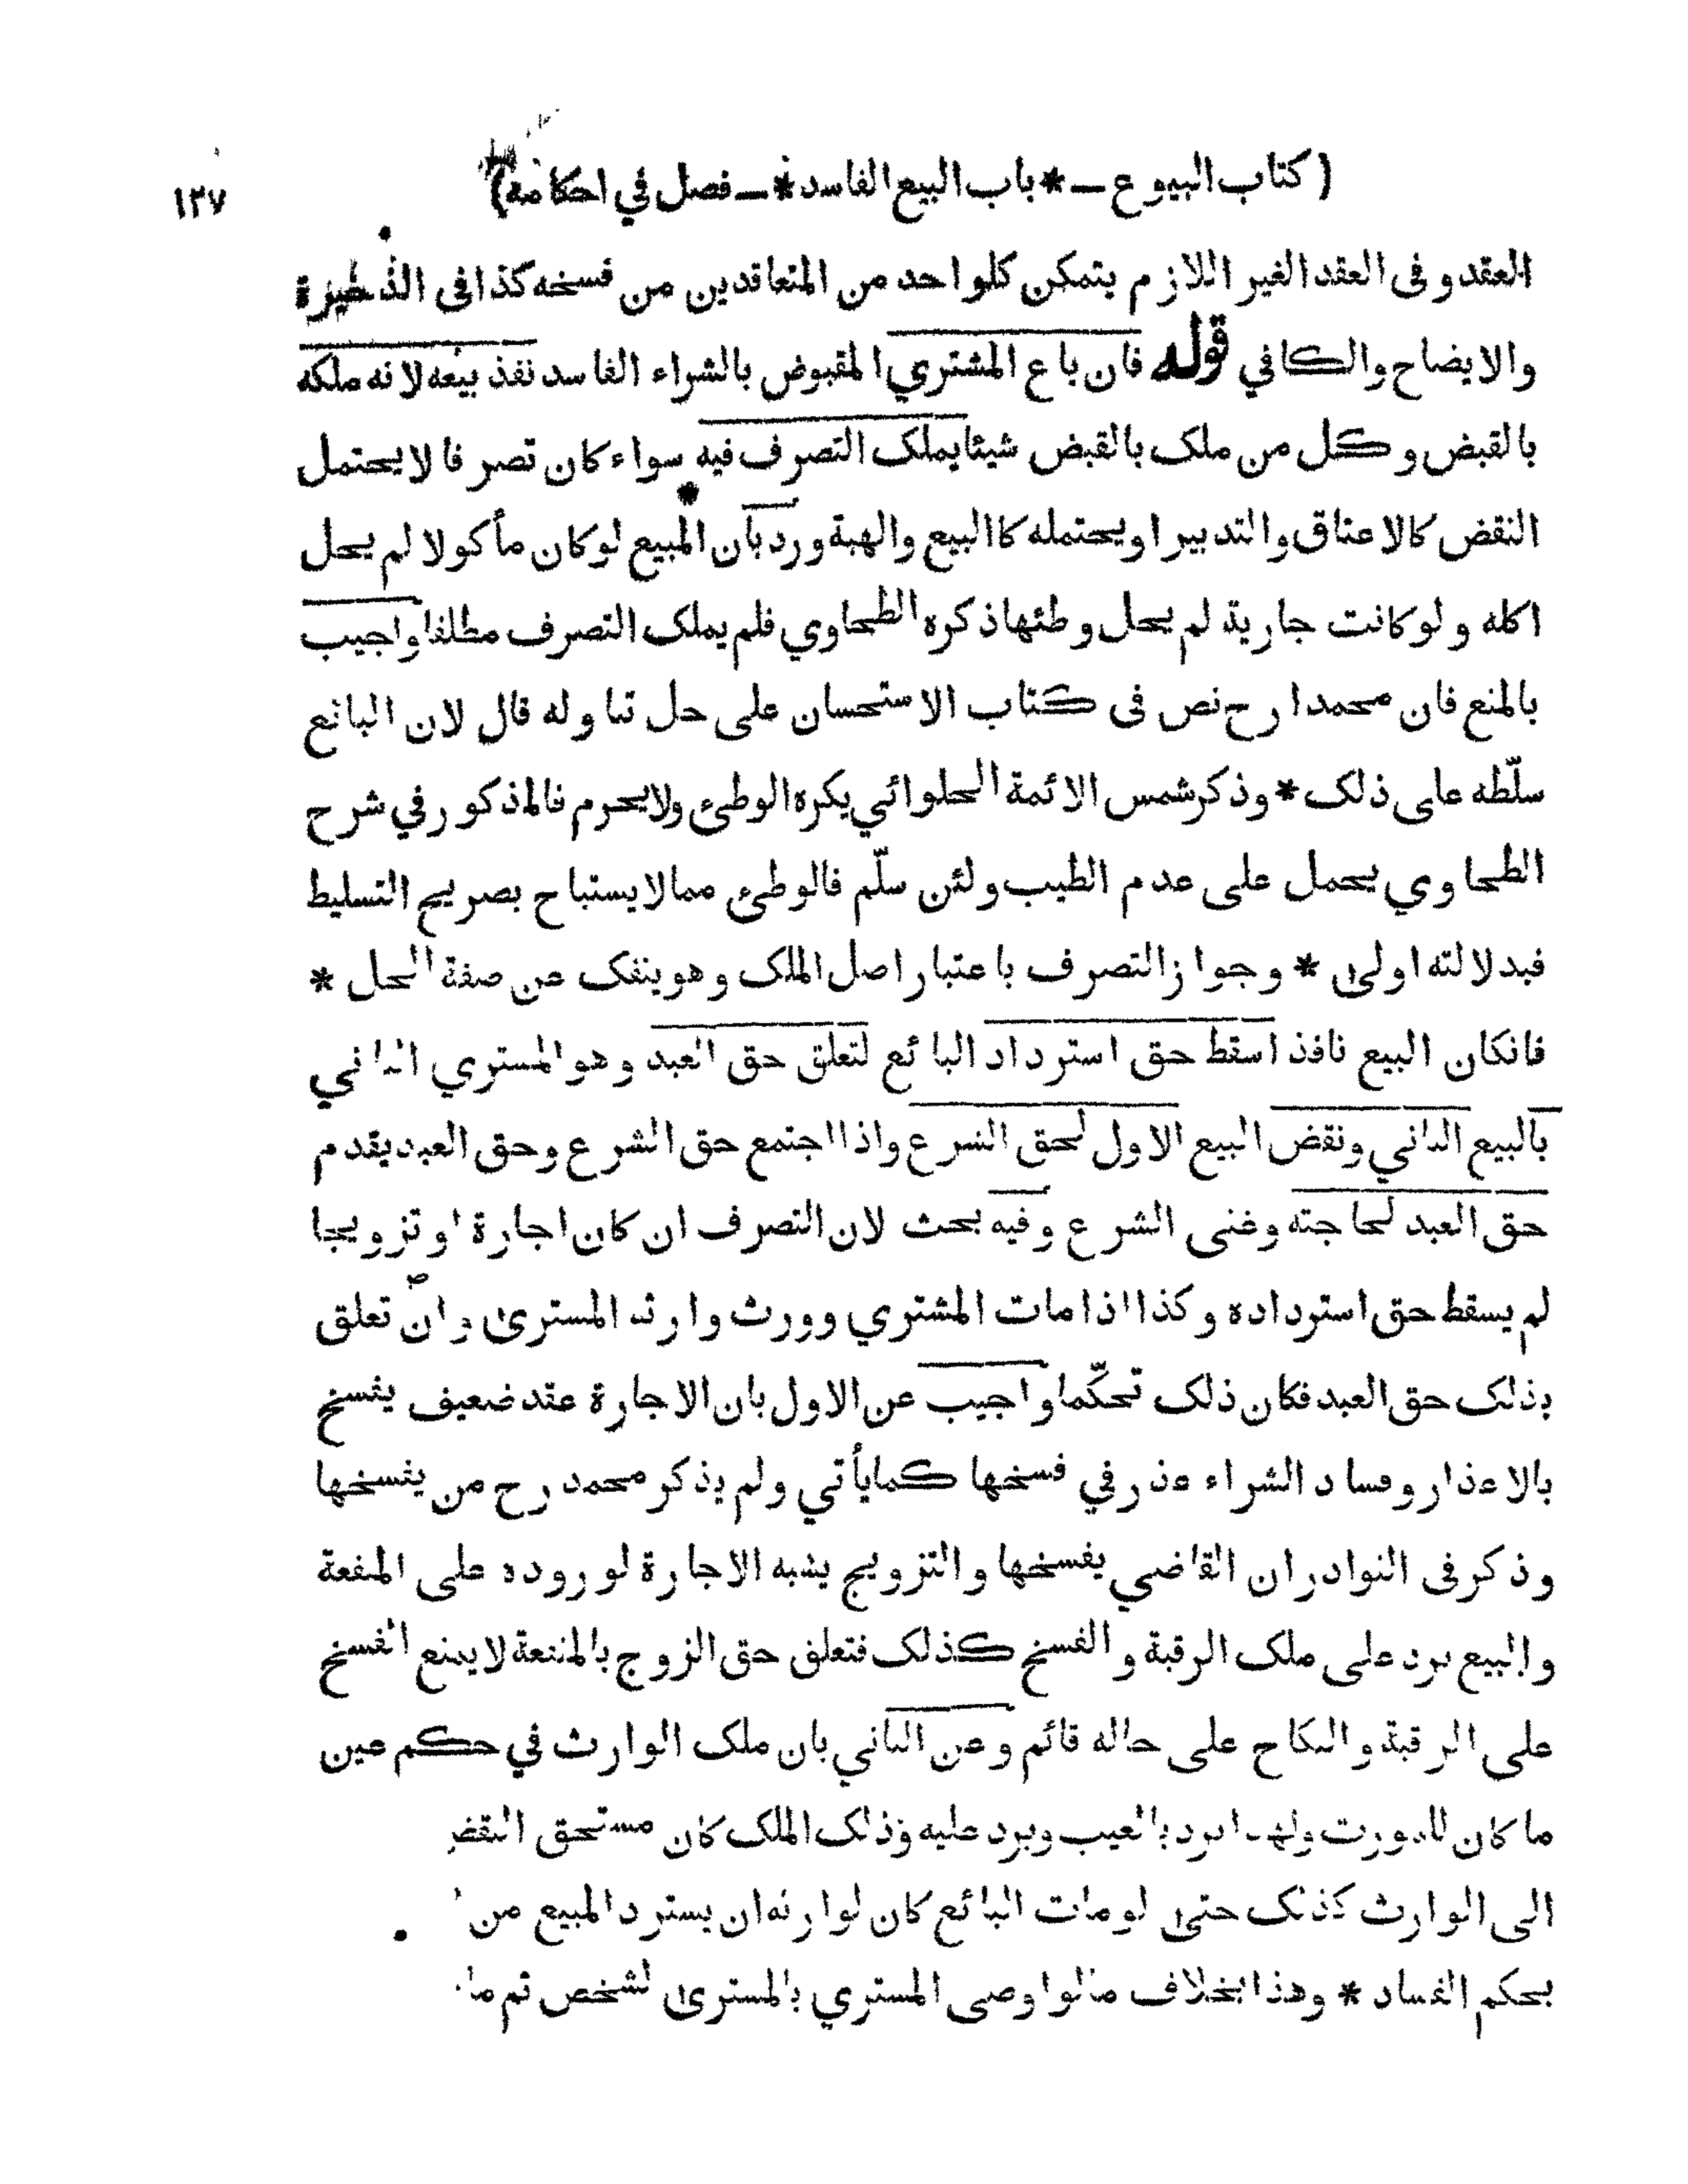 ( كتاب البيوع ــ * باب البيع الفاسد * ــ فصل في احكامه )
١٣٧
العقد وفى العقد الغير اللازم يتمكن كلواحد من المتعاقدين من فسخه كذا فى الذخيرة
والايضاح والكافي قوله فان باع المشتري المقبوض بالشراء الفاسد نفذ بيعه لانه ملكه
بالقبض وكل من ملك بالقبض شيئا يملك التصرف فيه سواء كان تصرفا لا يحتمل
النقض كالاعتاق والتدبير او يحتمله كالبيع والهبة ورد بأن المبيع لو كان مأكولا لم يحل
اكله ولو كانت جارية لم يحل وطئها ذكره الطحاوي فلم يملك التصرف مطلقا واجيب
بالمنع فان محمدا رح نص فى كتاب الاستحسان على حل تناوله قال لان البائع
سلّطه على ذلك * وذكر شمس الائمة الحلوائي يكره الوطئ ولا يحرم فالمذكور في شرح
الطحاوي يحمل على عدم الطيب ولئن سلّم فالوطئ مما لا يستباح بصريح التسليط
فبدلالته اولى * وجواز التصرف باعتبار اصل الملك وهو ينفك عن صفة الحل *
فانكان البيع نافذا سقط حق استرداد البائع لتعلق حق العبد وهو المشتري الثاني
بالبيع الثاني ونقض البيع الاول لحق الشرع واذا اجتمع حق الشرع وحق العبد يقدم
حق العبد لحاجته وغنى الشرع وفيه بحث لان التصرف ان كان اجارة او تزويجا
لم يسقط حق استرداده وكذا اذا مات المشتري وورث وارثه المشترى وان تعلق
بذلك حق العبد فكان ذلك تحكّما واجيب عن الاول بان الاجارة عقد ضعيف يفسخ
بالاعذار وفساد الشراء عذر في فسخها كما يأتي ولم يذكر محمد رح من يفسخها
وذكر فى النوادر ان القاضي يفسخها والتزويج يشبه الاجارة لوروده على المنفعة
والبيع يرد على ملك الرقبة والفسخ كذلك فتعلق حق الزوج بالمنفعة لا يمنع الفسخ
على الرقبة والنكاح على حاله قائم وعن الثاني بان ملك الوارث في حكم عين
ما كان للمورث ولهذا يرد بالعيب ويرد عليه وذلك الملك كان مستحق النقض
الى الوارث كذلك حتى لو مات البائع كان لوارثه ان يسترد المبيع من
بحكم الفساد * وهذا بخلاف ما لو اوصى المشتري بالمشترى لشخص ثم